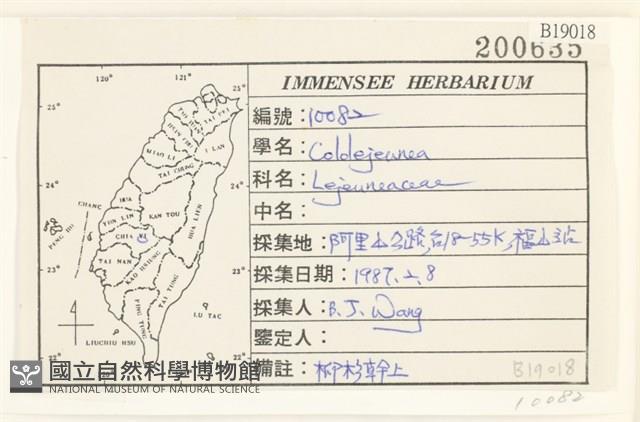 B19018
200635
IMMENSEE HERBARIUM
編號：10082
學名：Cololejeunea
科名：Lejeuneaceae
中名：
採集地：阿里山公路,台18-55K,福山站
採集日期：1987.2.8
採集人：B. J. Wang
鑒定人：
備註：柳杉幹上
B19018
10082
120°
121°
25°
25°
24°
24°
23°
23°
22°
TAI PEI
I LAN
MIAO LI
TAI CHUNG
CHANG
HUA
YUN LIN
NAN TOU
HUA LIEN
PENG HU
CHIA YI
TAI NAN
KAO HSIUNG
TAI TUNG
PING TUNG
LU TAC
LIUCHIU HSU
國立自然科學博物館
NATIONAL MUSEUM OF NATURAL SCIENCE